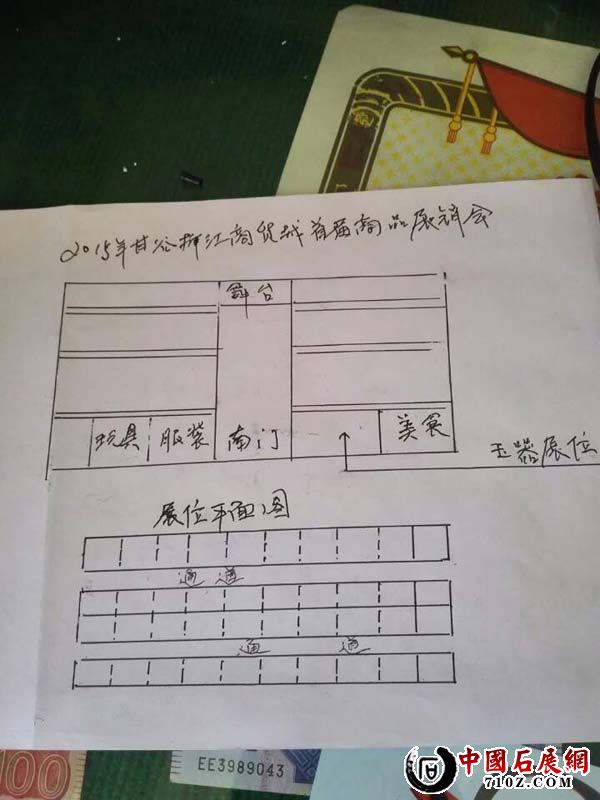 2015年甘谷柳江商贸城首届商品展销会
舞台
玩具 服装 南门 美食
玉器展位
展位平面图
通道
通道
100
EE3989043
中國石展網
7102.COM